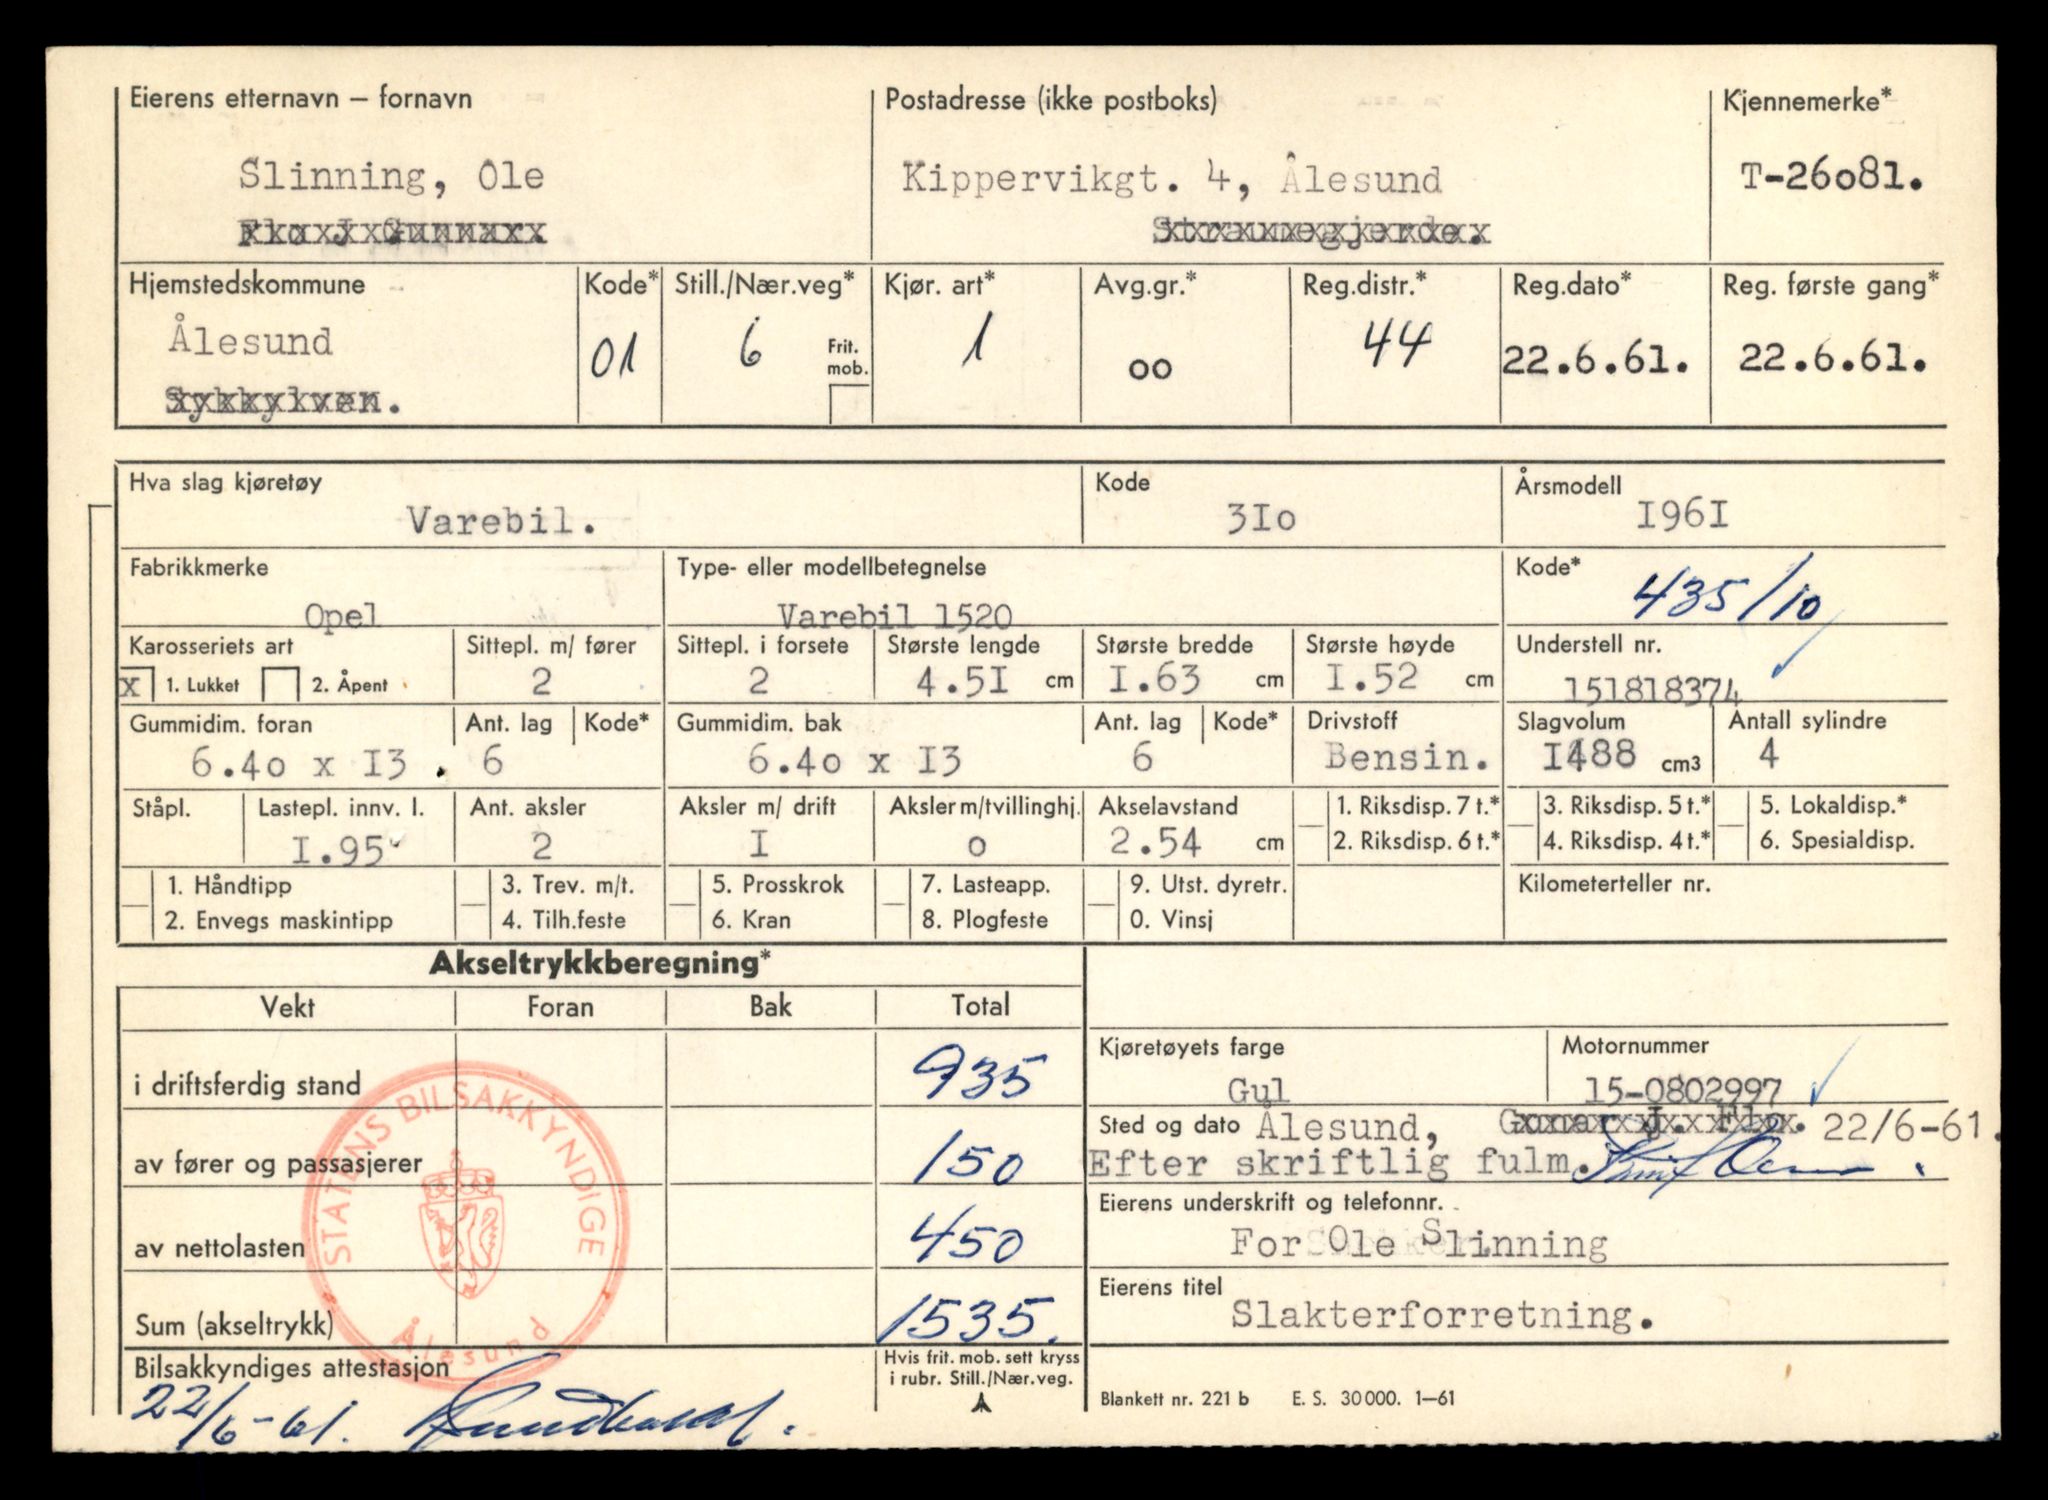 Eierens etternavn – fornavn
Postadresse (ikke postboks)
Kjennemerke*
Slinning, Ole
Kippervikgt. 4, Ålesund
T-26o81.
Flo J Gunnar.
Straumegjerde.
Hjemstedskommune
Kode*
Still./Nær.veg*
Kjør. art*
Avg.gr.*
Reg.distr.*
Reg.dato*
Reg. første gang*
Ålesund
01
6
Frit. mob.
1
oo
44
22.6.61.
22.6.61.
Sykkylven.
Hva slag kjøretøy
Kode
Årsmodell
Varebil.
3Io
I96I
Fabrikkmerke
Type- eller modellbetegnelse
Kode*
Opel
Varebil 1520
435/10
Karosseriets art
Sittepl. m/ fører
Sittepl. i forsete
Største lengde
Største bredde
Største høyde
Understell nr.
x 1. Lukket 2. Åpent
2
2
4.5I cm
I.63 cm
I.52 cm
151818374
Gummidim. foran
Ant. lag
Kode*
Gummidim. bak
Ant. lag
Kode*
Drivstoff
Slagvolum
Antall sylindre
6.4o x I3 .
6
6.4o x I3
6
Bensin.
I488 cm3
4
Ståpl.
Lastepl. innv. l.
Ant. aksler
Aksler m/ drift
Aksler m/tvillinghj.
Akselavstand
1. Riksdisp. 7 t.*
3. Riksdisp. 5 t.*
5. Lokaldisp.*
I.95
2
I
o
2.54 cm
2. Riksdisp. 6 t.*
4. Riksdisp. 4 t.*
6. Spesialdisp.
1. Håndtipp
3. Trev. m/t.
5. Prosskrok
7. Lasteapp.
9. Utst. dyretr.
Kilometerteller nr.
2. Envegs maskintipp
4. Tilh.feste
6. Kran
8. Plogfeste
0. Vinsj
Akseltrykkberegning*
Vekt
Foran
Bak
Total
i driftsferdig stand
935
av fører og passasjerer
150
av nettolasten
450
Sum (akseltrykk)
1535.
STATENS BILSAKKYNDIGE
Ålesund
Bilsakkyndiges attestasjon
22/6-61.
Hvis frit. mob. sett kryss
i rubr. Still./Nær.veg.
Kjøretøyets farge
Motornummer
Gul
15-0802997
Sted og dato Ålesund, Gunnar J. Flo. 22/6-61.
Efter skriftlig fulm.
Eierens underskrift og telefonnr.
For Ole Slinning
Eierens titel
Slakterforretning.
Blankett nr. 221 b E. S. 30000. 1–61